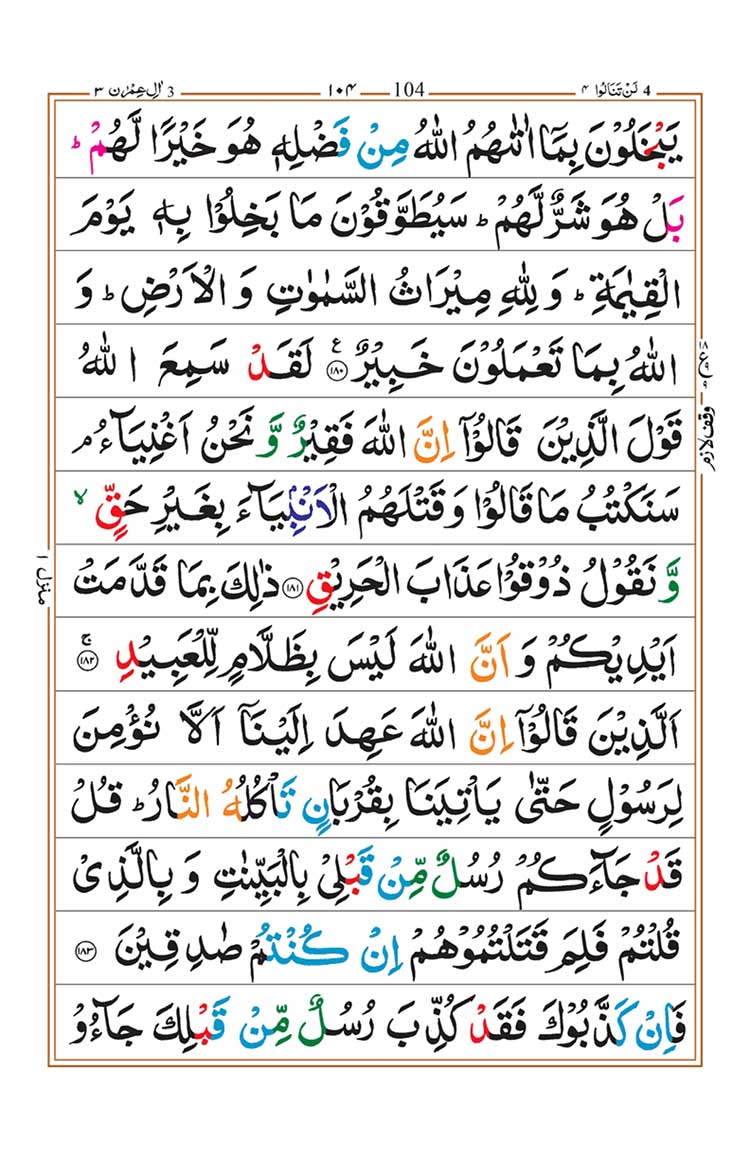 4 لَنْ تَنَالُوا ۴ — 104 — ۱۰۴ — 3 اٰلِ عِمْرٰن ۳
یَبْخَلُوْنَ بِمَاۤ اٰتٰىهُمُ اللّٰهُ مِنْ فَضْلِهٖ هُوَ خَیْرًا لَّهُمْ ؕ
بَلْ هُوَ شَرٌّ لَّهُمْ ؕ سَیُطَوَّقُوْنَ مَا بَخِلُوْا بِهٖ یَوْمَ
الْقِیٰمَةِ ؕ وَ لِلّٰهِ مِیْرَاثُ السَّمٰوٰتِ وَ الْاَرْضِ ؕ وَ
اللّٰهُ بِمَا تَعْمَلُوْنَ خَبِیْرٌ ۱۸۰ ع لَقَدْ سَمِعَ اللّٰهُ
قَوْلَ الَّذِیْنَ قَالُوْۤا اِنَّ اللّٰهَ فَقِیْرٌ وَّ نَحْنُ اَغْنِیَآءُ ۘ
وقف لازم
سَنَكْتُبُ مَا قَالُوْا وَ قَتْلَهُمُ الْاَنْۢبِیَآءَ بِغَیْرِ حَقٍّ ۙ
وَّ نَقُوْلُ ذُوْقُوْا عَذَابَ الْحَرِیْقِ ۱۸۱ ذٰلِكَ بِمَا قَدَّمَتْ
منزل ۱
اَیْدِیْكُمْ وَ اَنَّ اللّٰهَ لَیْسَ بِظَلَّامٍ لِّلْعَبِیْدِ ۱۸۲ ۚ
اَلَّذِیْنَ قَالُوْۤا اِنَّ اللّٰهَ عَهِدَ اِلَیْنَاۤ اَلَّا نُؤْمِنَ
لِرَسُوْلٍ حَتّٰى یَاْتِیَنَا بِقُرْبَانٍ تَاْكُلُهُ النَّارُ ؕ قُلْ
قَدْ جَآءَكُمْ رُسُلٌ مِّنْ قَبْلِیْ بِالْبَیِّنٰتِ وَ بِالَّذِیْ
قُلْتُمْ فَلِمَ قَتَلْتُمُوْهُمْ اِنْ كُنْتُمْ صٰدِقِیْنَ ۱۸۳
فَاِنْ كَذَّبُوْكَ فَقَدْ كُذِّبَ رُسُلٌ مِّنْ قَبْلِكَ جَآءُوْ